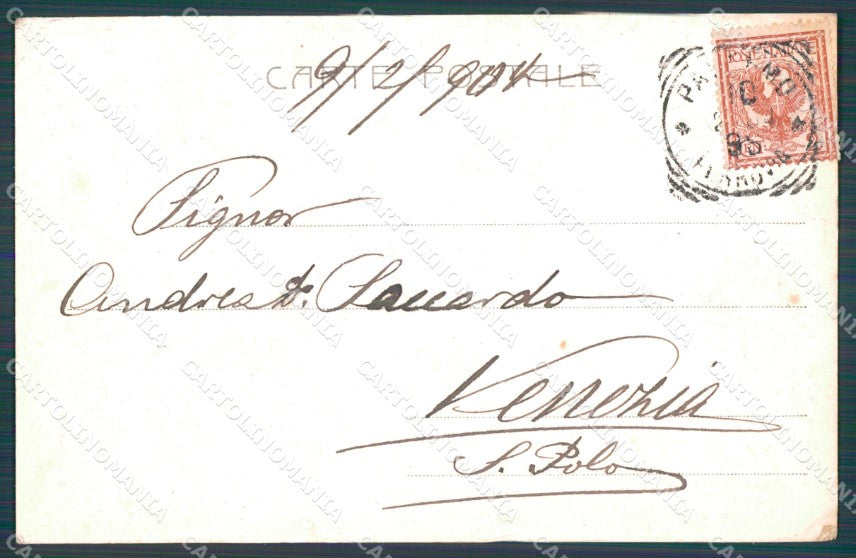 CARTE POSTALE
9/2/904
Signor
Andrea Dr. Saccardo
Venezia
S. Polo
CARTOLINOMANIA